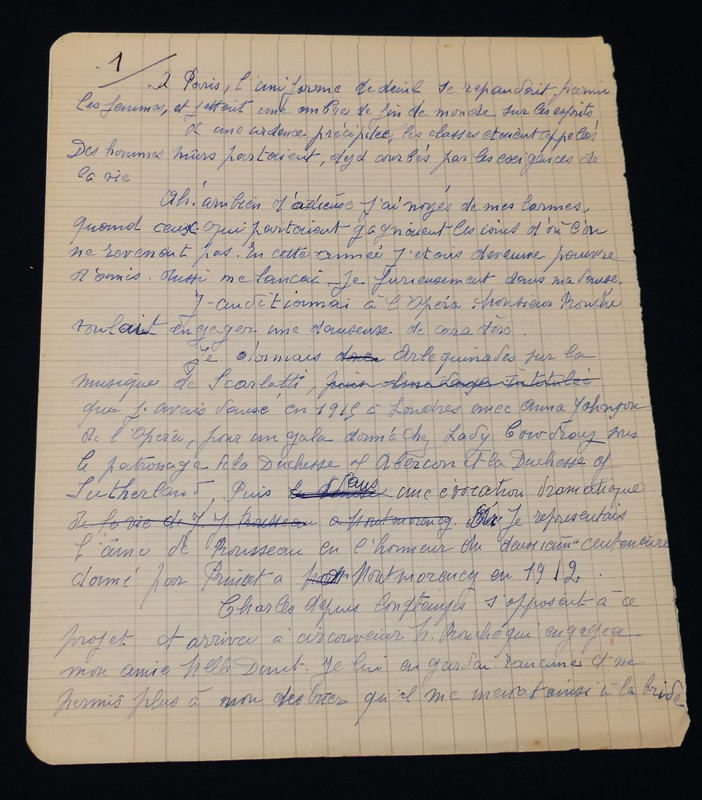 1
A Paris, l'uniforme de deuil se repandait parmi
les femmes, et jettait une ombre de fin de monde sur les esprits
D'une cadence précipitée, les classes etaient appelés
Des hommes mûrs partaient, déjà courbés par les exigences de
la vie
Ah! combien d'adieux j'ai noyés de mes larmes,
quand ceux qui partaient gagnaient les coins d'où l'on
ne revenait pas. En cette année j'etais devenue pauvre
d'amis. Aussi me lançai-je furieusement dans ma danse.
J'auditionnai à l'Opéra. Monsieur Rouché
voulait engager une danseuse de caractère.
Je donnais Arlequinades sur la
musique de Scarlatti, puis intitulée
que j'avais dansé en 1915 à Londres avec Anna Johnson
de l'Opéra, pour un gala donné chez Lady Cowdray sous
le patronage de la Duchesse of Abercorn et la Duchesse of
Sutherland, Puis dans une évocation dramatique
de la vie de J J Rousseau a Montmorency. Je representais
l'âme de Rousseau en l'honneur du deuxième centenaire
donné par Prince a Montmorency en 1912.
Charles depuis longtemps s'opposait à ce
projet et arriva a circonvenir M. Rouché qui engagea
mon amie Melle Le lui en gardai rancune et ne
permis plus à mon qu'il me menat ainsi à la bride